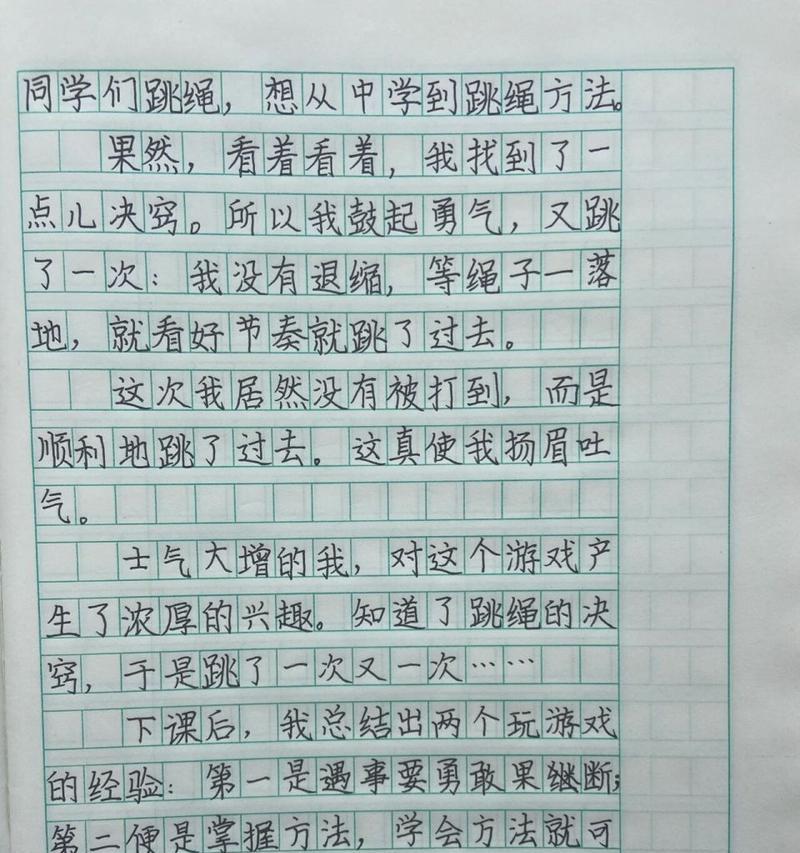 同学们跳绳，想从中学到跳绳方法。
果然，看着看着，我找到了一
点儿决窍。所以我鼓起勇气，又跳
了一次：我没有退缩，等绳子一落
地，就看好节奏就跳了过去。
这次我居然没有被打到，而是
顺利地跳了过去。这真使我扬眉吐
气。
士气大增的我，对这个游戏产
生了浓厚的兴趣。知道了跳绳的决
窍，于是跳了一次又一次……
下课后，我总结出两个玩游戏
的经验：第一是遇事要勇敢果继断；
第二便是掌握方法，学会方法就可